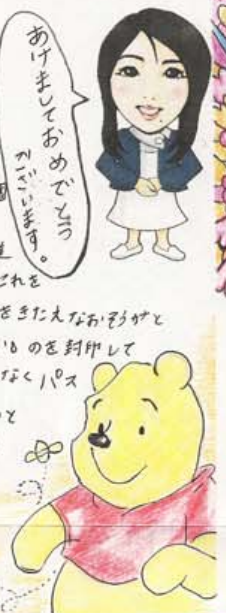 あけましておめでとう
ございます。
これを
をきたえなおそうかと
のを封印して
なくパス
と